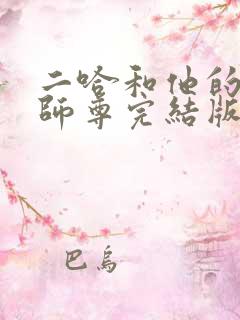 二哈和他的
師尊完結版
巴烏